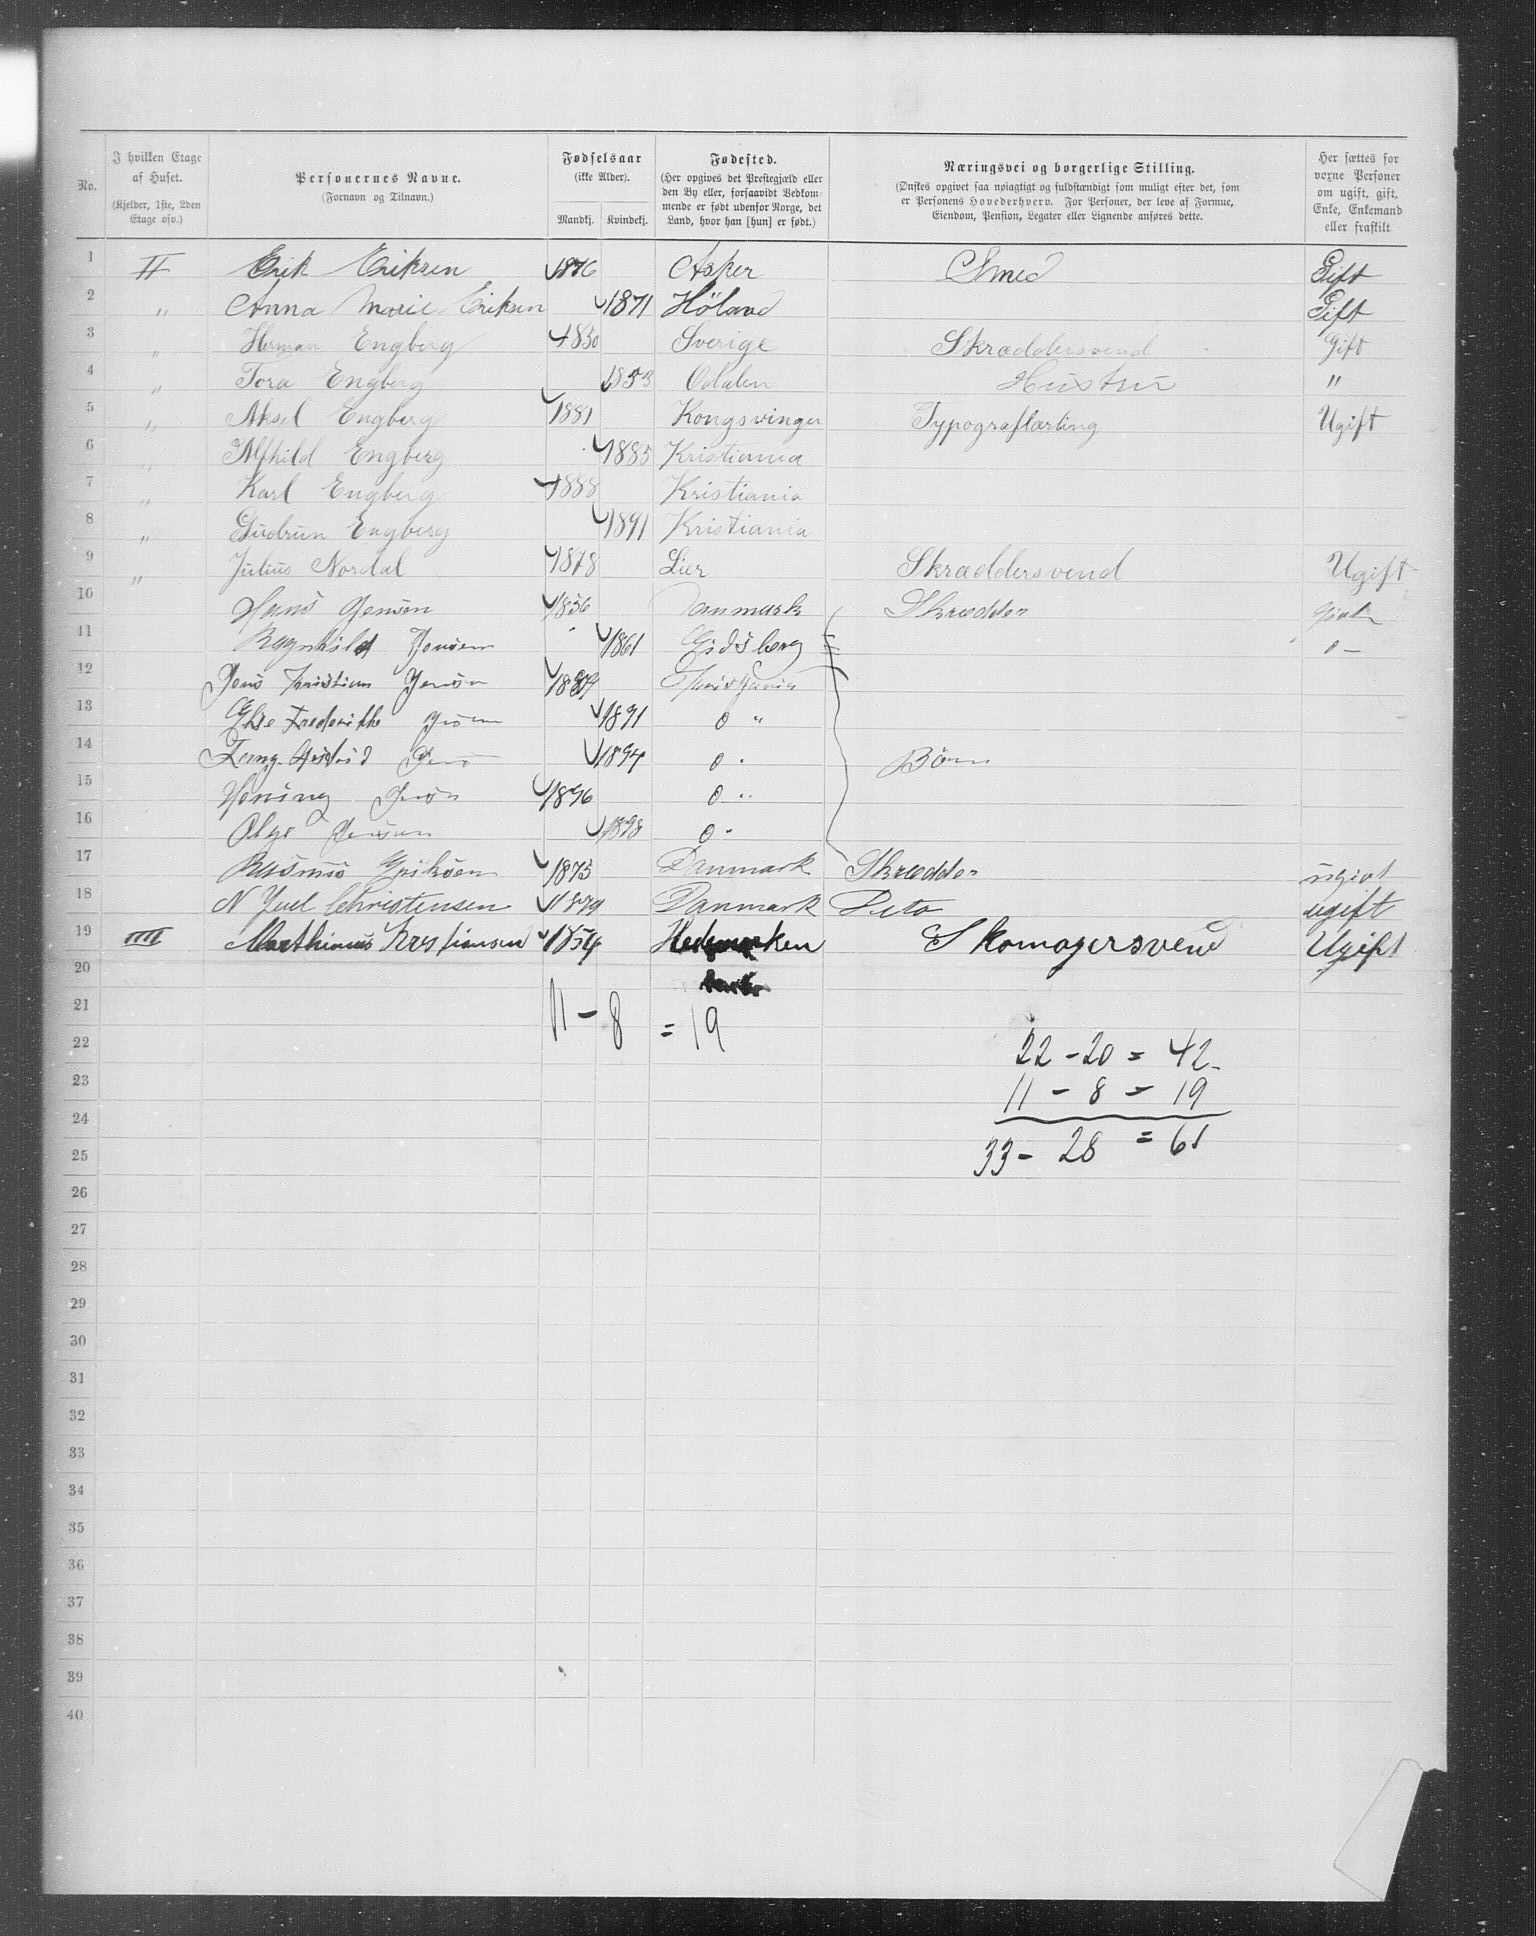 No.
I hvilken Etage af Huset.
(Kjelder, 1ste, 2den Etage osv.)
Personernes Navne.
(Fornavn og Tilnavn.)
Fødselsaar
(ikke Alder).
Mandkj. Kvindekj.
Fødested.
(Her opgives det Prestegjæld eller
den By eller, forsaavidt Vedkom-
mende er født udenfor Norge, det
Land, hvor han [hun] er født.)
Næringsvei og borgerlige Stilling.
(Ønskes opgivet saa nøiagtigt og fuldstændigt som muligt efter det, som
er Personens Hovederhverv. For Personer, der leve af Formue,
Eiendom, Pension, Legater eller Lignende anføres dette.
Her sættes for
voxne Personer
om ugift, gift,
Enke, Enkemand
eller fraskilt.
1 II Erik Eriksen 1876 Asker Smed Gift
2 " Anna Marie Eriksen 1871 Höland Gift
3 " Herman Engberg 1850 Sverige Skræddersvend Gift
4 " Tora Engberg 1853 Odalen Hustru "
5 " Aksel Engberg 1881 Kongsvinger Typograflærling Ugift
6 " Alfhild Engberg 1885 Kristiania
7 " Karl Engberg 1888 Kristiania
8 " Gudrun Engberg 1891 Kristiania
9 " Julius Nordal 1878 Lier Skræddersvend Ugift
10 Hans Jensen 1856 Danmark Skrædder
11 Ragnhild Jensen 1861 Eidsberg
12 Jens Kristian Jensen Christiania
13 Else Frederikke Jensen 1891 "
14 1894 Børn
15 Henning Jensen 1896
16 Olga Jensen 1898
17 Rasmus Eriksen 1875 Danmark Skrædder ugivt
18 N Juel Christensen 1879 Danmark Dito ugift
19 IIII Marthinius Kristiansen 1854 Hedemarken Skomagersvend Ugift
20
21 11 - 8 = 19
22 22 - 20 = 42
23 11 - 8 = 19
24
25 33 - 28 = 61
26
27
28
29
30
31
32
33
34
35
36
37
38
39
40